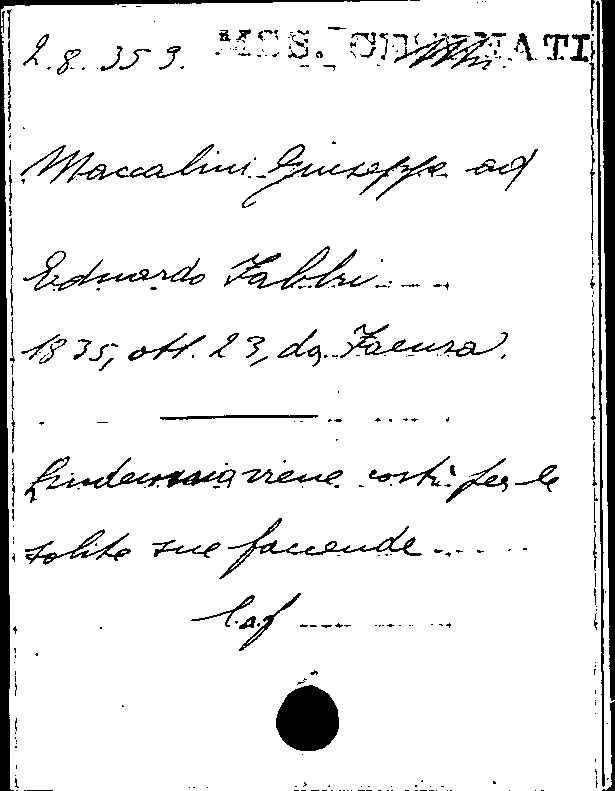 2.8.359. MSS.
Maccalini Giuseppe ad
Eduardo Fabbri
1835, ott. 23, da Faenza.
viene costì per le
solite sue faccende